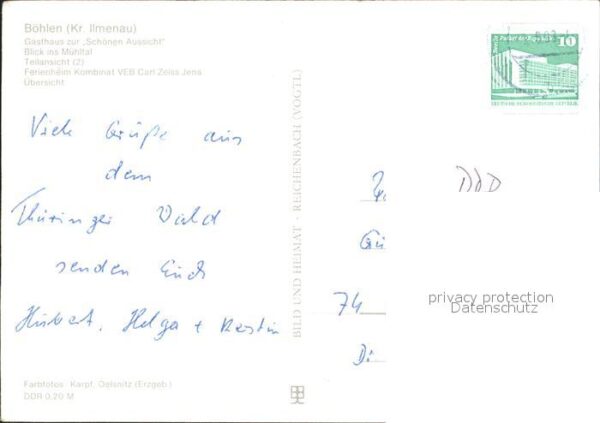 Böhlen (Kr. Ilmenau)
Gasthaus zur „Schönen Aussicht"
Blick ins Mühltal
Teilansicht (2)
Ferienheim Kombinat VEB Carl Zeiss Jena
Übersicht
Viele Grüße aus
dem
Thüringer Wald
senden Euch
Hubert, Helga + Kerstin
Farbfotos: Karpf, Oelsnitz (Erzgeb.)
DDR 0,20 M
BILD UND HEIMAT · REICHENBACH (VOGTL)
10
74
privacy protection
Datenschutz